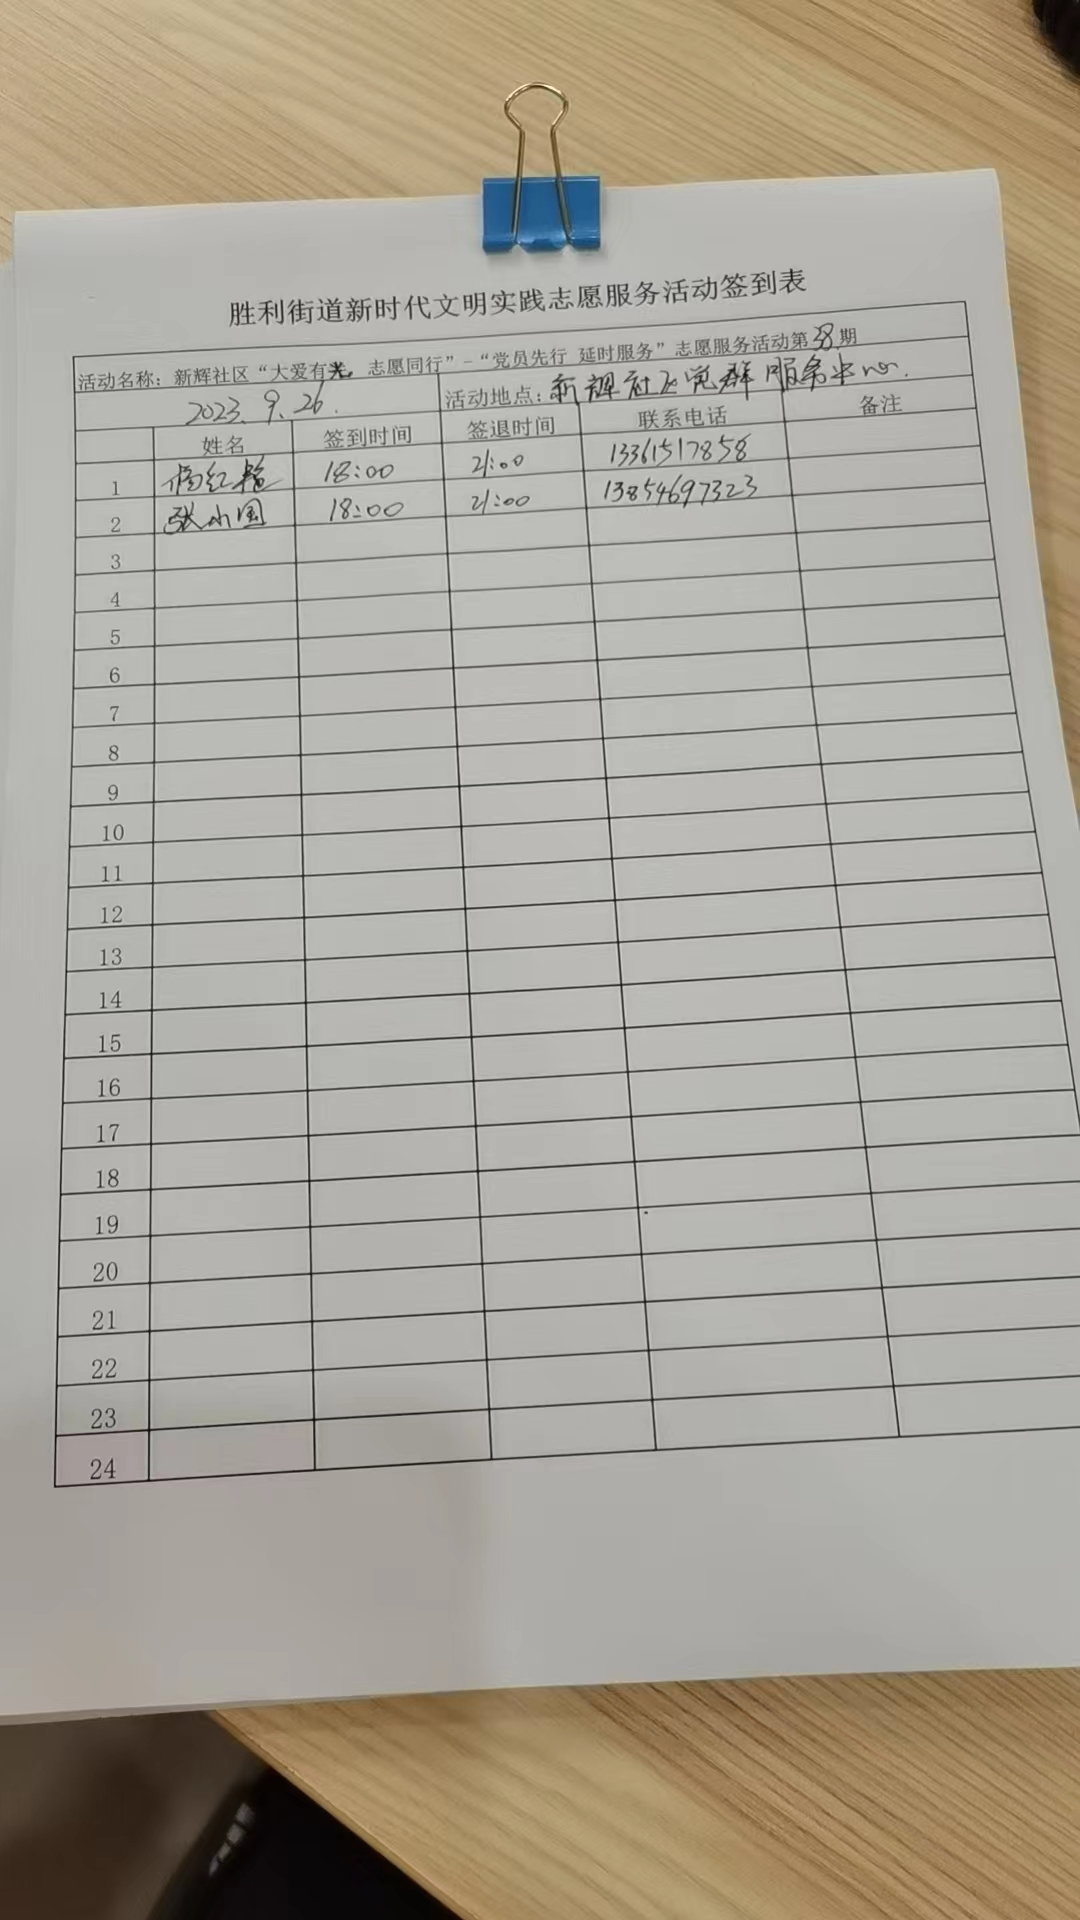 胜利街道新时代文明实践志愿服务活动签到表
活动名称：新辉社区“大爱有光，志愿同行”-“党员先行 延时服务”志愿服务活动第38期
2023.9.26. 活动地点：新辉社区党群服务中心.
姓名 签到时间 签退时间 联系电话 备注
1 杨红艳 18:00 21:00 13361517858
2 张小国 18:00 21:00 13854697323
3
4
5
6
7
8
9
10
11
12
13
14
15
16
17
18
19
20
21
22
23
24